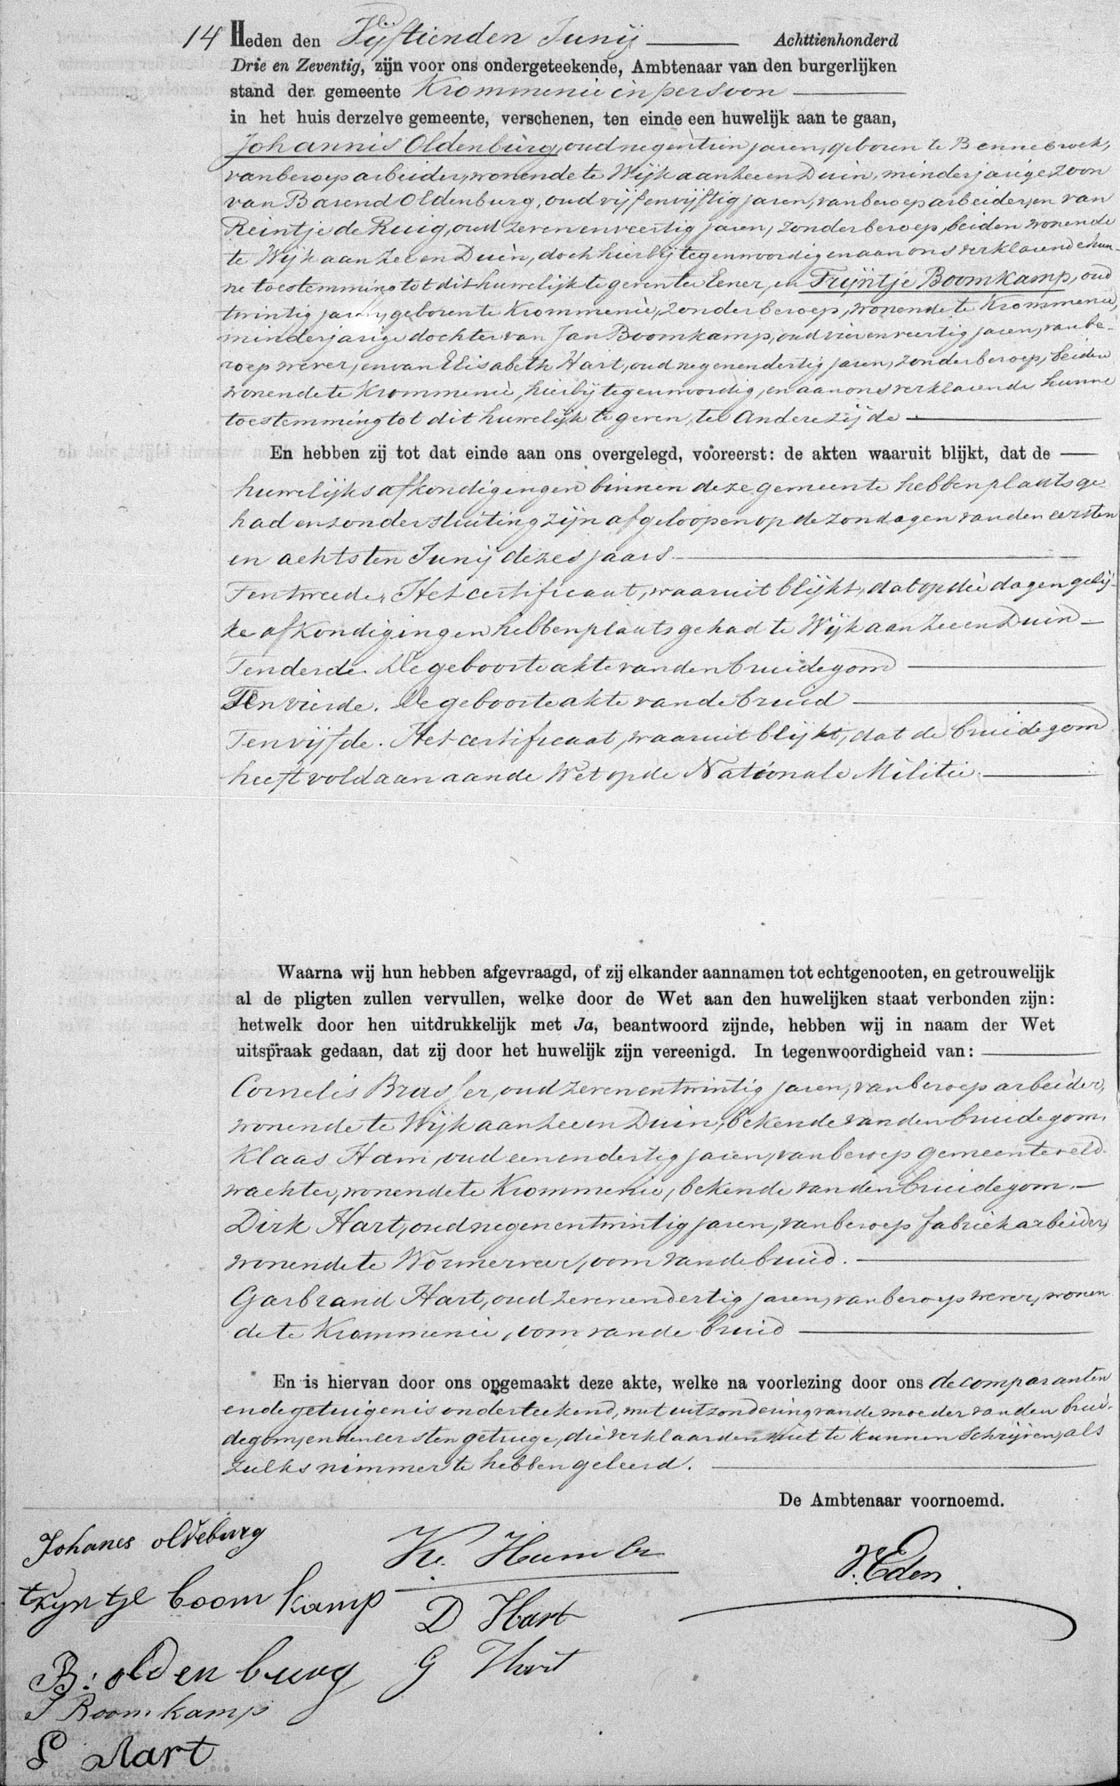 14 Heden den Vijftienden Junij Achttienhonderd
Drie en Zeventig, zijn voor ons ondergeteekende, Ambtenaar van den burgerlijken
stand der gemeente Krommenie in persoon
in het huis derzelve gemeente, verschenen, ten einde een huwelijk aan te gaan,
Johannis Oldenburg, oud negentien jaren, geboren te Bennebroek,
van beroep arbeider, wonende te Wijk aan Zee en Duin, minderjarige zoon
van Barend Oldenburg, oud vijfenvijftig jaren, van beroep arbeider, en van
Reintje de Ruig, oud zevenenveertig jaren, zonder beroep, beiden wonende
te Wijk aan Zee en Duin, doch hierbij tegenwoordig en aan ons verklarende hun-
ne toestemming tot dit huwelijk te geven ter Eener, en Trijntje Boomkamp, oud
twintig jaren, geboren te Krommenie, zonder beroep, wonende te Krommenie,
minderjarige dochter van Jan Boomkamp, oud vierenveertig jaren, van be-
roep wever, en van Elisabeth Hart, oud negenendertig jaren, zonder beroep, beiden
wonende te Krommenie, hierbij tegenwoordig, en aan ons verklarende hunne
toestemming tot dit huwelijk te geven, ter Andere zijde
En hebben zij tot dat einde aan ons overgelegd, vooreerst: de akten waaruit blijkt, dat de
huwelijksafkondigingen binnen deze gemeente hebben plaats ge
had en zonder stuiting zijn afgeloopen op de zondagen van den eersten
en achtsten Junij dezes jaars
Ten tweede, Het certificaat, waaruit blijkt, dat op die dagen gelij-
ke afkondigingen hebben plaats gehad te Wijk aan Zee en Duin
Ten derde. De geboorteakte van den bruidegom
Ten vierde. De geboorteakte van de bruid
Ten vijfde. Het certificaat, waaruit blijkt, dat de bruidegom
heeft voldaan aan de Wet op de Nationale Militie
Waarna wij hun hebben afgevraagd, of zij elkander aannamen tot echtgenooten, en getrouwelijk
al de pligten zullen vervullen, welke door de Wet aan den huwelijken staat verbonden zijn:
hetwelk door hen uitdrukkelijk met Ja, beantwoord zijnde, hebben wij in naam der Wet
uitspraak gedaan, dat zij door het huwelijk zijn vereenigd. In tegenwoordigheid van:
Cornelis Brasser, oud zevenentwintig jaren, van beroep arbeider,
wonende te Wijk aan Zee en Duin, bekende van den bruidegom,
Klaas Ham, oud eenendertig jaren, van beroep gemeenteveld-
wachter, wonende te Krommenie, bekende van den bruidegom.
Dirk Hart, oud negenentwintig jaren, van beroep fabriekarbeider,
wonende te Wormerveer, oom van de bruid.
Garbrand Hart, oud zevenendertig jaren, van beroep wever, wonen
de te Krommenie, oom van de bruid
En is hiervan door ons opgemaakt deze akte, welke na voorlezing door ons de comparanten
en de getuigen is onderteekend, met uitzondering van de moeder van den brui-
degom, en den eersten getuige, die verklaarden niet te kunnen schrijven, als
zulks nimmer te hebben geleerd.
De Ambtenaar voornoemd.
Johanes oldeburg
trijntje boomkamp
B: oldenburg
J Boomkamp
E Hart
D Hart
G Hart